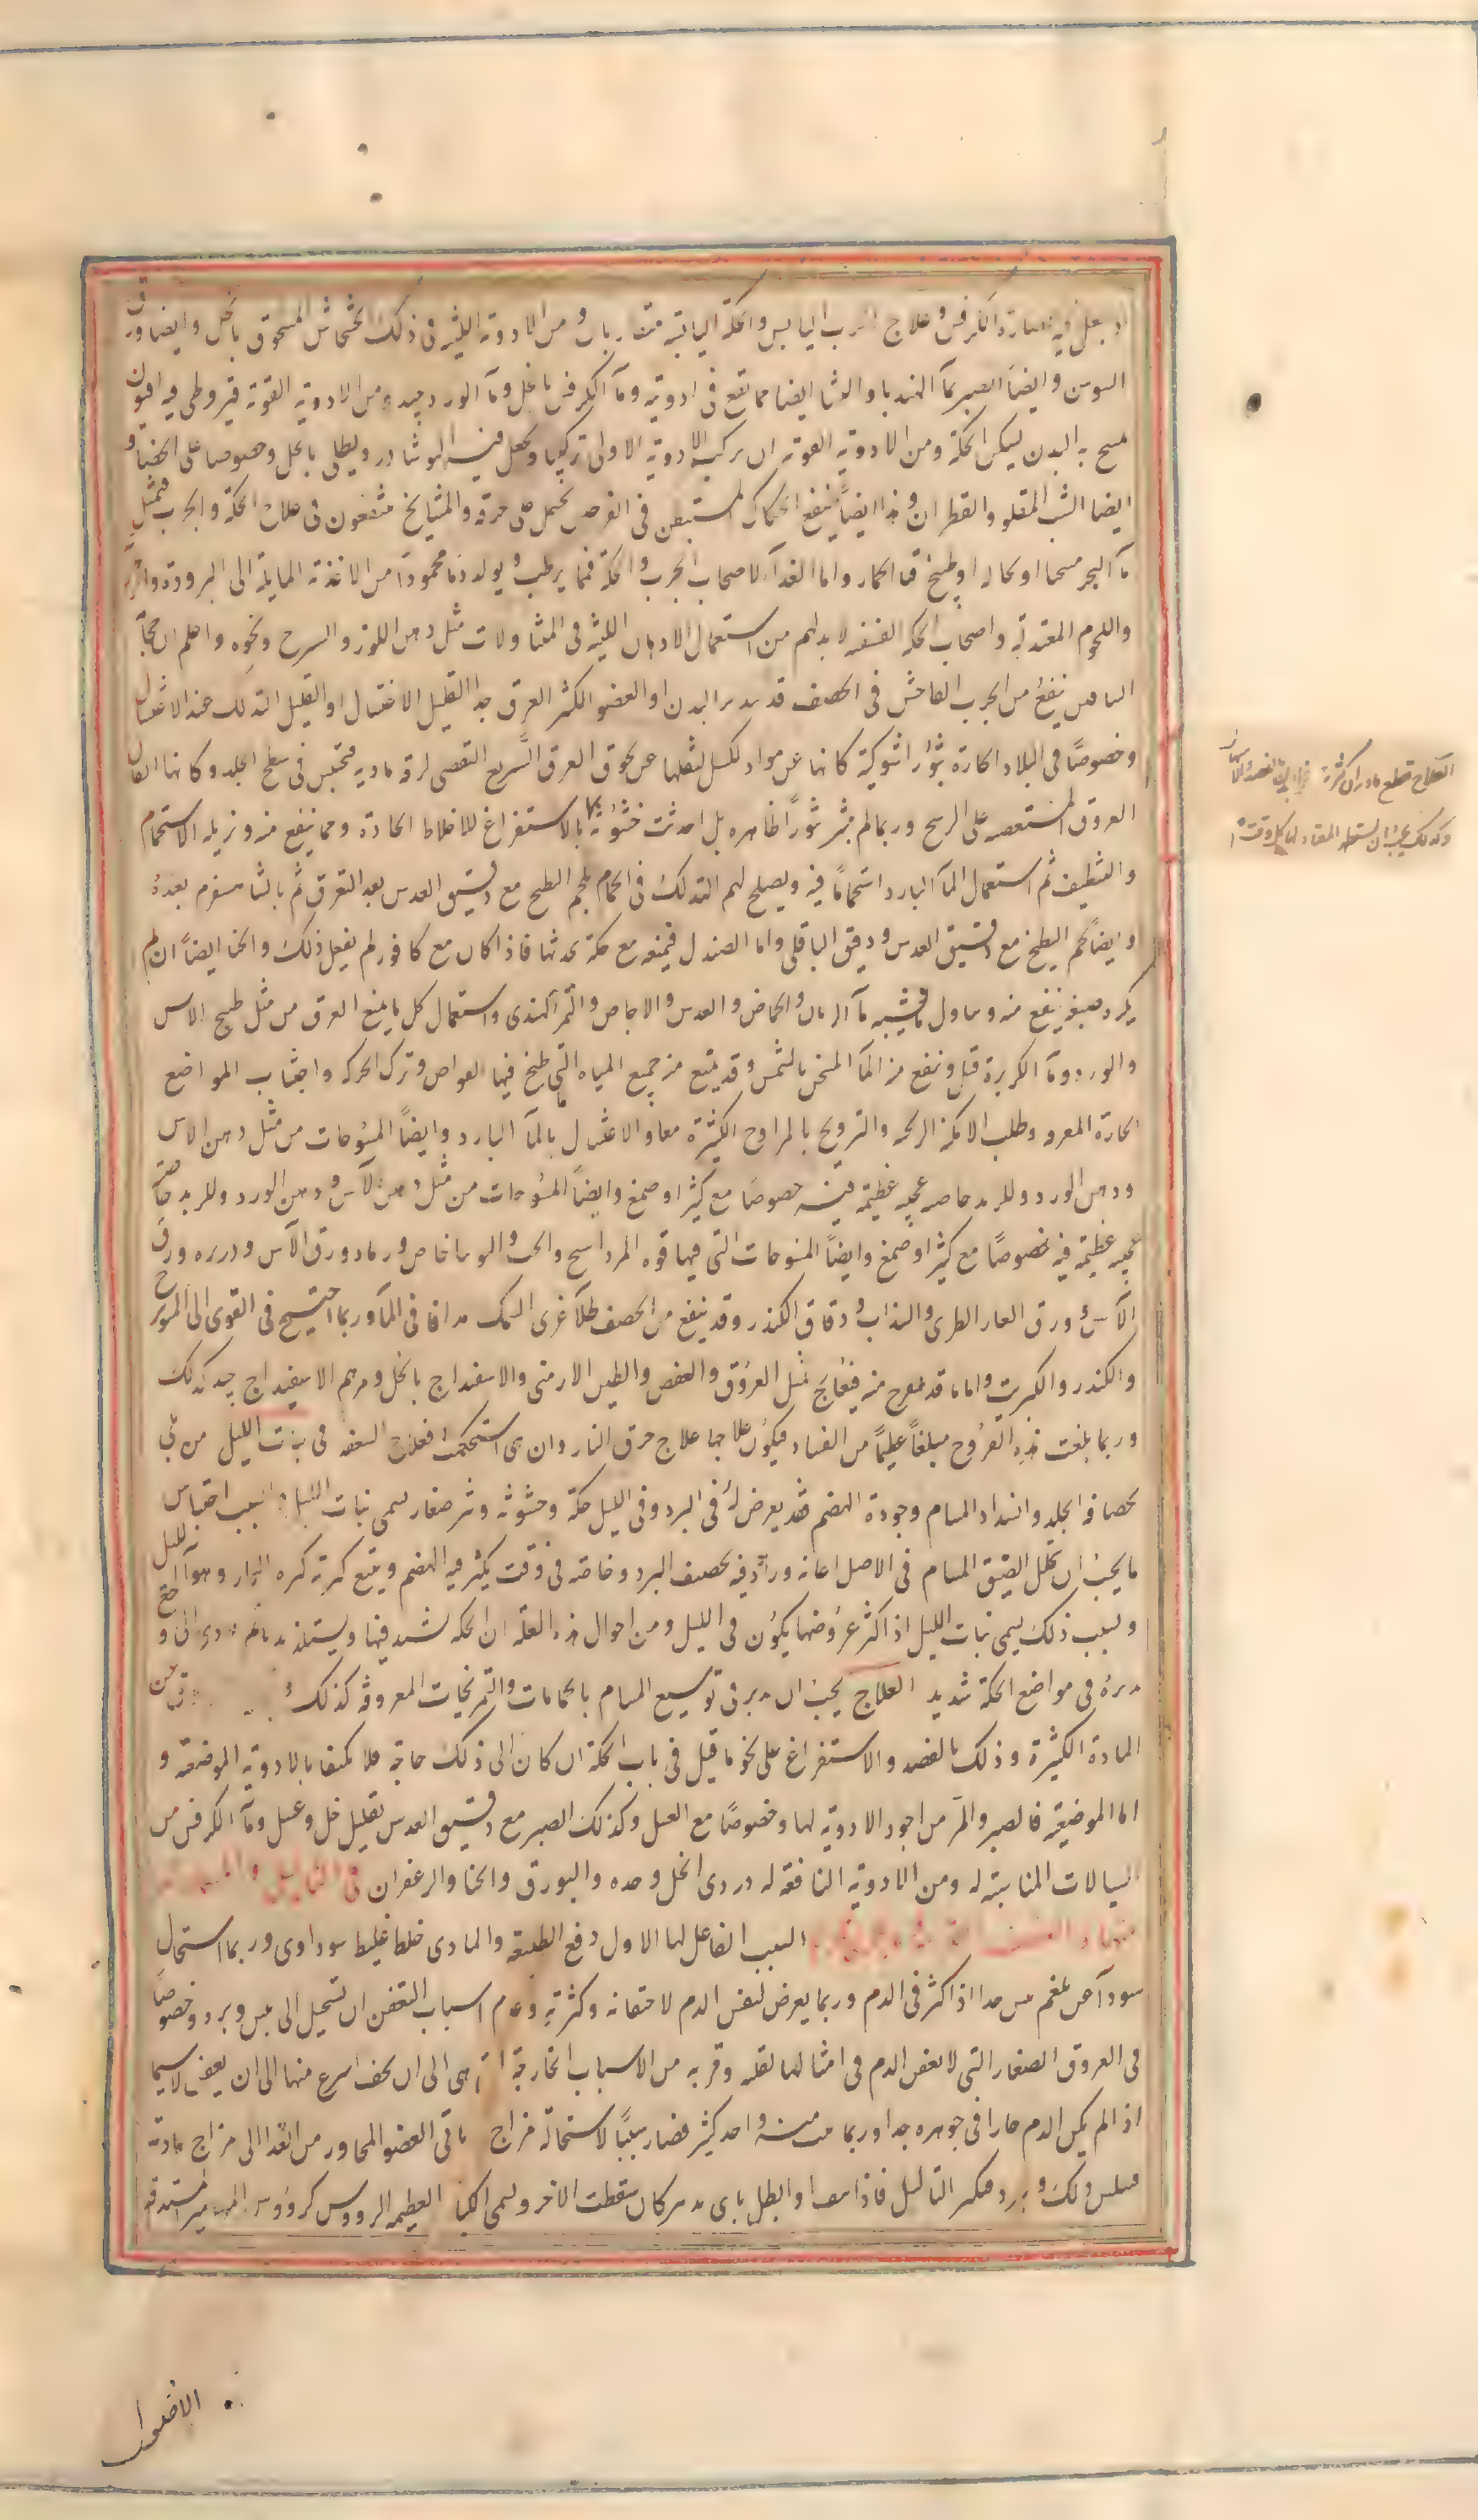 او بعل فيه عصارة الكرفس وعلاج الجرب اليابس والحكة اليابسة متقاربان ومن الادوية اللينة فى ذلك الخشخاش المسحوق بالخل وايضا ورق
السوسن وايضا الصبر بمآ الهندبا والنشا ايضا مما يقع فى ادويته ومآ الكرفس بالخل ومآ الورد جيد ومن الادوية القوية قيروطى فيه افيون
يمسح به البدن ليسكن الحكة ومن الادوية القوية ان يركب الادوية الاولى تركيبا ويجعل فيه النوشادر ويطلى بالخل وخصوصا على الخصيا و
ايضا الشب المقلو والقطران وهذا ايضاً ينفع الحكاك المستبطن فى الفرج يحتمل فى خرقة والمشايخ منتفعون فى علاج الحكة والجرب بمثل
مآ البحر مسخنا او بحاله او طبيخ قثا الحمار واما الغدآ لاصحاب الجرب والحكة فما يرطب ويولد دما محموداً من الاغذية المايلة الى البرودة والرطوبة
واللحوم المعتدلة واصحاب الحكة القشفية لا بد لهم من استعمال الادهان اللينة فى المتناولات مثل دهن اللوز والسرج ونحوه واعلم ان حجآمة
الساقين ينفع من الجرب الفاحش فى الحصف قد يبدر بالبدن او العضو الكثير العرق جدا القليل الاغتسال او القليل التدلك عند الاغتسال
وخصوصًا فى البلاد الحارة بثورًا شوكية كانها عن مواد تكسل لثقلها عن لحوق العرق السَّريع التفصى لرقة مادية فتحتبس فى سطح الجلد وكانها اثقال
العروق المستعصية على الرشح وربما لم تبثر بثورًا ظاهرة بل احدثت خشونة بالاستفراغ للاخلاط الحادة ومما ينفع منه ويزيله الاستحمام
والتنظيف ثم استعمال المآ البارد استحمامًا فيه ويصلح لهم التدلك فى الحمام بلحم البطيخ مع دقيق العدس بعد التعرق ثم بالنشا بعده
وايضًا لحم البطيخ مع دقيق العدس ودقيق الباقلى واما الصندل فيمنعه مع حكة يحدثها فاذا كان مع كافور لم يفعل ذلك والحنا ايضاً ان لم
يكره صبغه ينفع منه وتناول ما يشبه مآ الرمان والحماض والعدس والاجاص والتمر الهندى واستعمال كل ما يمنع العرق من مثل طبيخ الاس
والورد ومآ الكزبرة قبل وينفع من المآ المسخن بالشمس وقد يمنع من جميع المياه التى طبخ فيها القوابض وترك الحركة واجتناب المواضع
الحارة المعرقة وطلب الامكنة الريحية والترويح بالمراوح الكثيرة معا والاغتسال بالمآ البارد وايضاً المسوحات من مثل دهن الاس
ودهن الورد وللزبد خاصة عجيبة عظيمة فيه خصوصًا مع كثيرا وصمغ وايضاً المسوحات من مثل دهن الآس ودهن الورد وللزبد خاصية
عجيبة عظيمة فيه خصوصًا مع كثيرا وصمغ وايضاً المسوحات التى فيها قوة المرداسنج والخث والوساخاص ورماد ورق الآس وذريرة ورق
الآس وورق الغار الطرى والسذاب ودقاق الكندر وقد ينفع من الحصف طلآ غرى السمك مدافا فى المآ وربما احتيج فى القوى الى الموزج
والكندر والكبريت واما ما قد تقرح منه فيعالج بمثل العروق والعفص والطين الارمنى والاسفيداج بالخل ومرهم الاسفيداج جيد كذلك
وربما بلغت هذه القروح مبلغاً عظيماً من الفساد فيكون علاجها علاج حرق النار وان هى استحكمت فعلاج السعفة فى بنات الليل من بلى
بحصافة الجلد وانسداد المسام وجودة الهضم فقد يعرض له فى البرد وفى الليل حكة وخشونة وبثر صغار يسمى بنات الليل والسبب احتباس
ما يجب ان يتحلل لضيق المسام فى الاصل اعانه وزاد فيه تحصيف البرد وخاصة فى وقت يكثر فيه الهضم ويتبع كثرته كثرة البخار وهو الليل
وبسبب ذلك يسمى بنات الليل اذ اكثر عروضها يكون فى الليل ومن احوال هذه العلة ان الحكة تشتد فيها ويستلذ ثم تودى الى وجع
فى مواضع الحكة شديد العلاج يجب ان يدبر فى توسيع المسام بالحمامات والتمريخات المعروفة كذلك
المادة الكثيرة وذلك بالفصد والاستفراغ على نحو ما قيل فى باب الحكة ان كان الى ذلك حاجة فلا يكتفا بالادوية الموضعية و
اما الموضعية فالصبر والمر من اجود الادوية لها وخصوصًا مع العسل وكذلك الصبر مع دقيق العدس بقليل خل وعسل ومآ الكرفس من
السيالات المناسبة له ومن الادوية النافعة له دردى الخل وحده والبورق والحنا والزعفران فى الثاليل
السبب الفاعل لها الاول دفع الطبيعة والمادى خلط غليظ سوداوى وربما استحال
سودآ عن بلغم يبس جدا اذا كثر فى الدم وربما يعرض لنفس الدم لاحتقانه وكثرته وعدم اسباب التعفن ان تستحيل الى يبس وبرد وخصوصًا
فى العروق الصغار التى لا يعفن الدم فى امثالها لقلته وقربه من الاسباب الخارجة التى هى الى ان يجف اسرع منها الى ان يعفن لاسيما
اذا لم يكن الدم حارا فى جوهره جدا وربما نبت منه واحد كثير فصار سببًا لاستحالة مزاج باقى العضو المجاور من الغذا الى مزاج مادته
ذلك ويبرد فيكثر الثاليل فاذا او ابطل باى تدبير كان سقطت الاخر ويسمى الكبار العظيمة الرووس كرووس المسامير المستدقة
الاصول
العلاج قطع مادة ان كثرت بالفصد والاسهال
وكذلك يجب ان يستعمل لها كل وقت